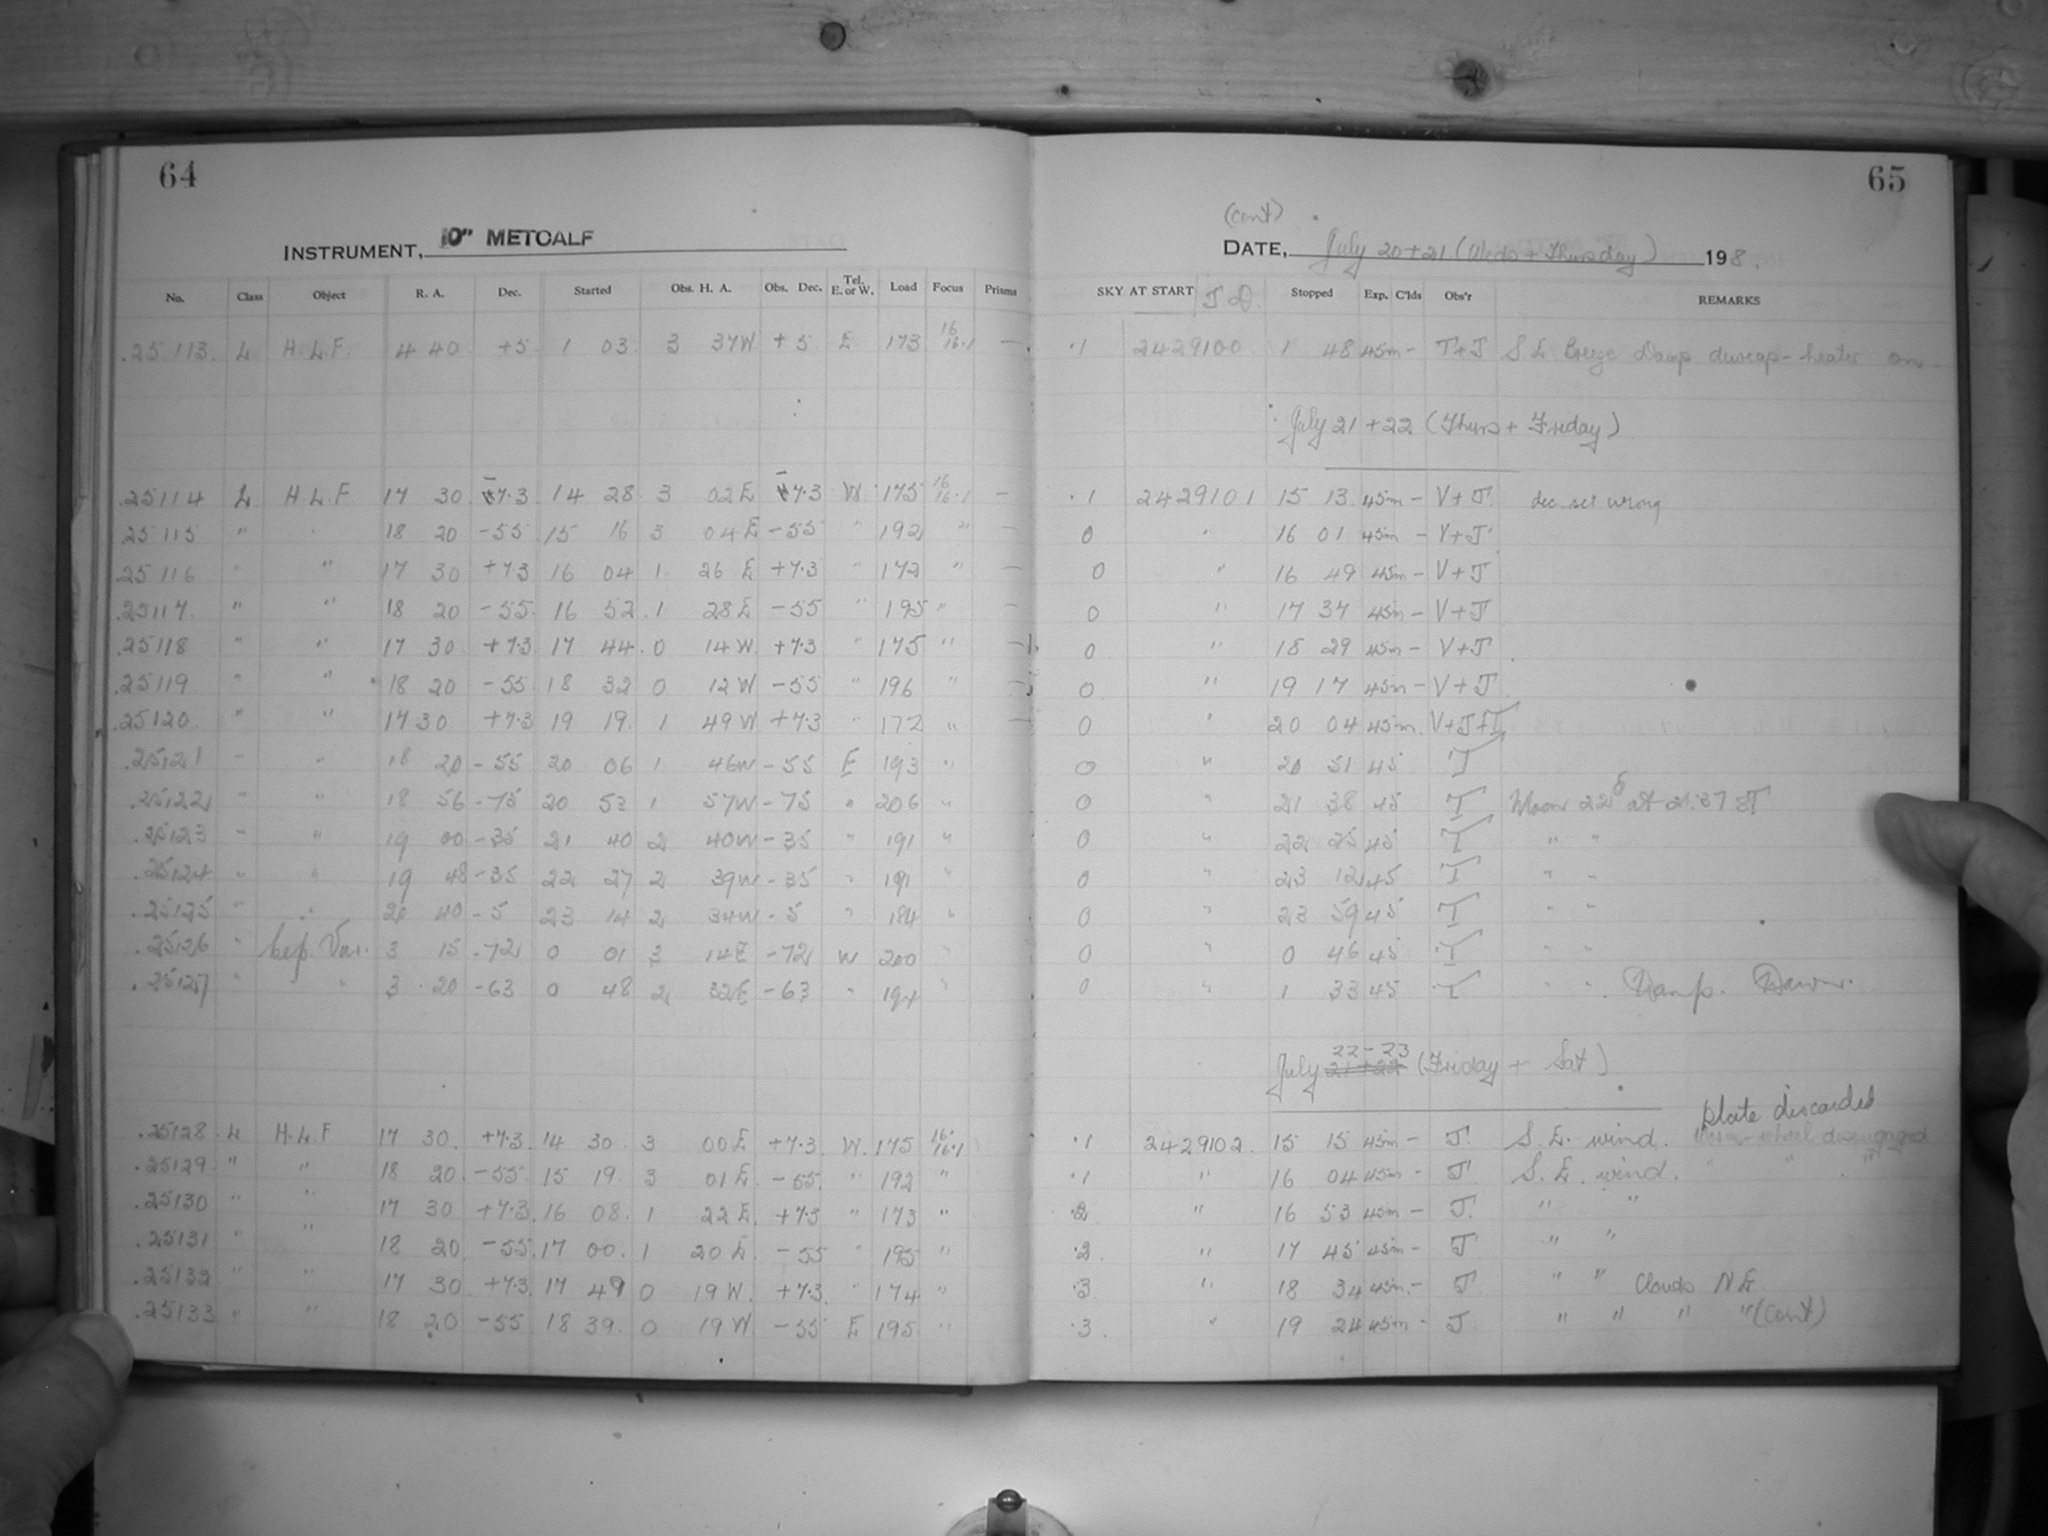 64
INSTRUMENT, 10" METCALF
No. Class Object R. A. Dec. Started Obs. H. A. Obs. Dec. Tel. E. or W. Load Focus Prisms
25113 L H.L.F. 4 40 +5 1 03 3 37W +5 E 173 16 16.1 -
25114 L H.L.F 17 30 -7.3 14 28 3 02E -7.3 W 175 16 16.1 -
25115 " " 18 20 -55 15 16 3 04E -55 " 192 " -
25116 " " 17 30 +7.3 16 04 1 26 E +7.3 " 172 " -
25117 " " 18 20 -55 16 52 1 28E -55 " 195 " -
25118 " " 17 30 +7.3 17 44 0 14 W +7.3 " 175 " -
25119 " " 18 20 -55 18 32 0 12 W -55 " 196 " -
25120 " " 17 30 +7.3 19 19 1 49 W +7.3 " 172 " -
25121 " " 18 20 -55 20 06 1 46W -55 E 193 "
25122 " " 18 56 -75 20 53 1 57W -75 " 206 "
25123 " " 19 00 -35 21 40 2 40W -35 " 191 "
25124 " " 19 48 -35 22 27 2 39W -35 " 191 "
25125 " " 20 40 -5 23 14 2 34W -5 " 184 "
25126 " Cep. Var. 3 15 -72 0 01 3 14E -72 W 200 "
25127 " " 3 20 -63 0 48 2 32E -63 " 194 "
25128 L H.L.F 17 30 +7.3 14 30 3 00E +7.3 W 175 16. 16.1
25129 " " 18 20 -55 15 19 3 01E -55 " 192 "
25130 " " 17 30 +7.3 16 08 1 22E +7.3 " 173 "
25131 " " 18 20 -55 17 00 1 20 E -55 " 195 "
25132 " " 17 30 +7.3 17 49 0 19 W +7.3 " 174 "
25133 " " 18 20 -55 18 39 0 19 W -55 E 195 "
65
(cont)
DATE, July 20+21 (Weds + Thursday) 198.
SKY AT START J.D. Stopped Exp. C'lds Obs'r REMARKS
.1 2429100 1 48 45m - T+J S E Breeze Damp dewcap-heater on
July 21 +22 (Thurs + Friday)
.1 2429101 15 13 45m - V+J. dec. set wrong
0 " 16 01 45m - V+J
0 " 16 49 45m - V+J
0 " 17 37 45m - V+J
0 " 18 29 45m - V+J
0 " 19 17 45m - V+J
0 " 20 04 45m V+J+T
0 " 20 51 45 T
0 " 21 38 45 T Moon at 21:37 ST
0 " 22 25 45 T " "
0 " 23 12 45 T " "
0 " 23 59 45 T " "
0 " 0 46 45 T " "
0 " 1 33 45 T " " Damp. Dawn.
July 21+22 22-23 (Friday + Sat)
plate discarded
.1 2429102 15 15 45m - J. S.E. wind. Worm-wheel disengaged
.1 " 16 04 45m - J. S.E. wind. " " "
.2 " 16 53 45m - J. " "
.2 " 17 45 45m - J " "
.3 " 18 34 45m - J. " " Clouds N E
.3 " 19 24 45m - J. " " " " (cont)